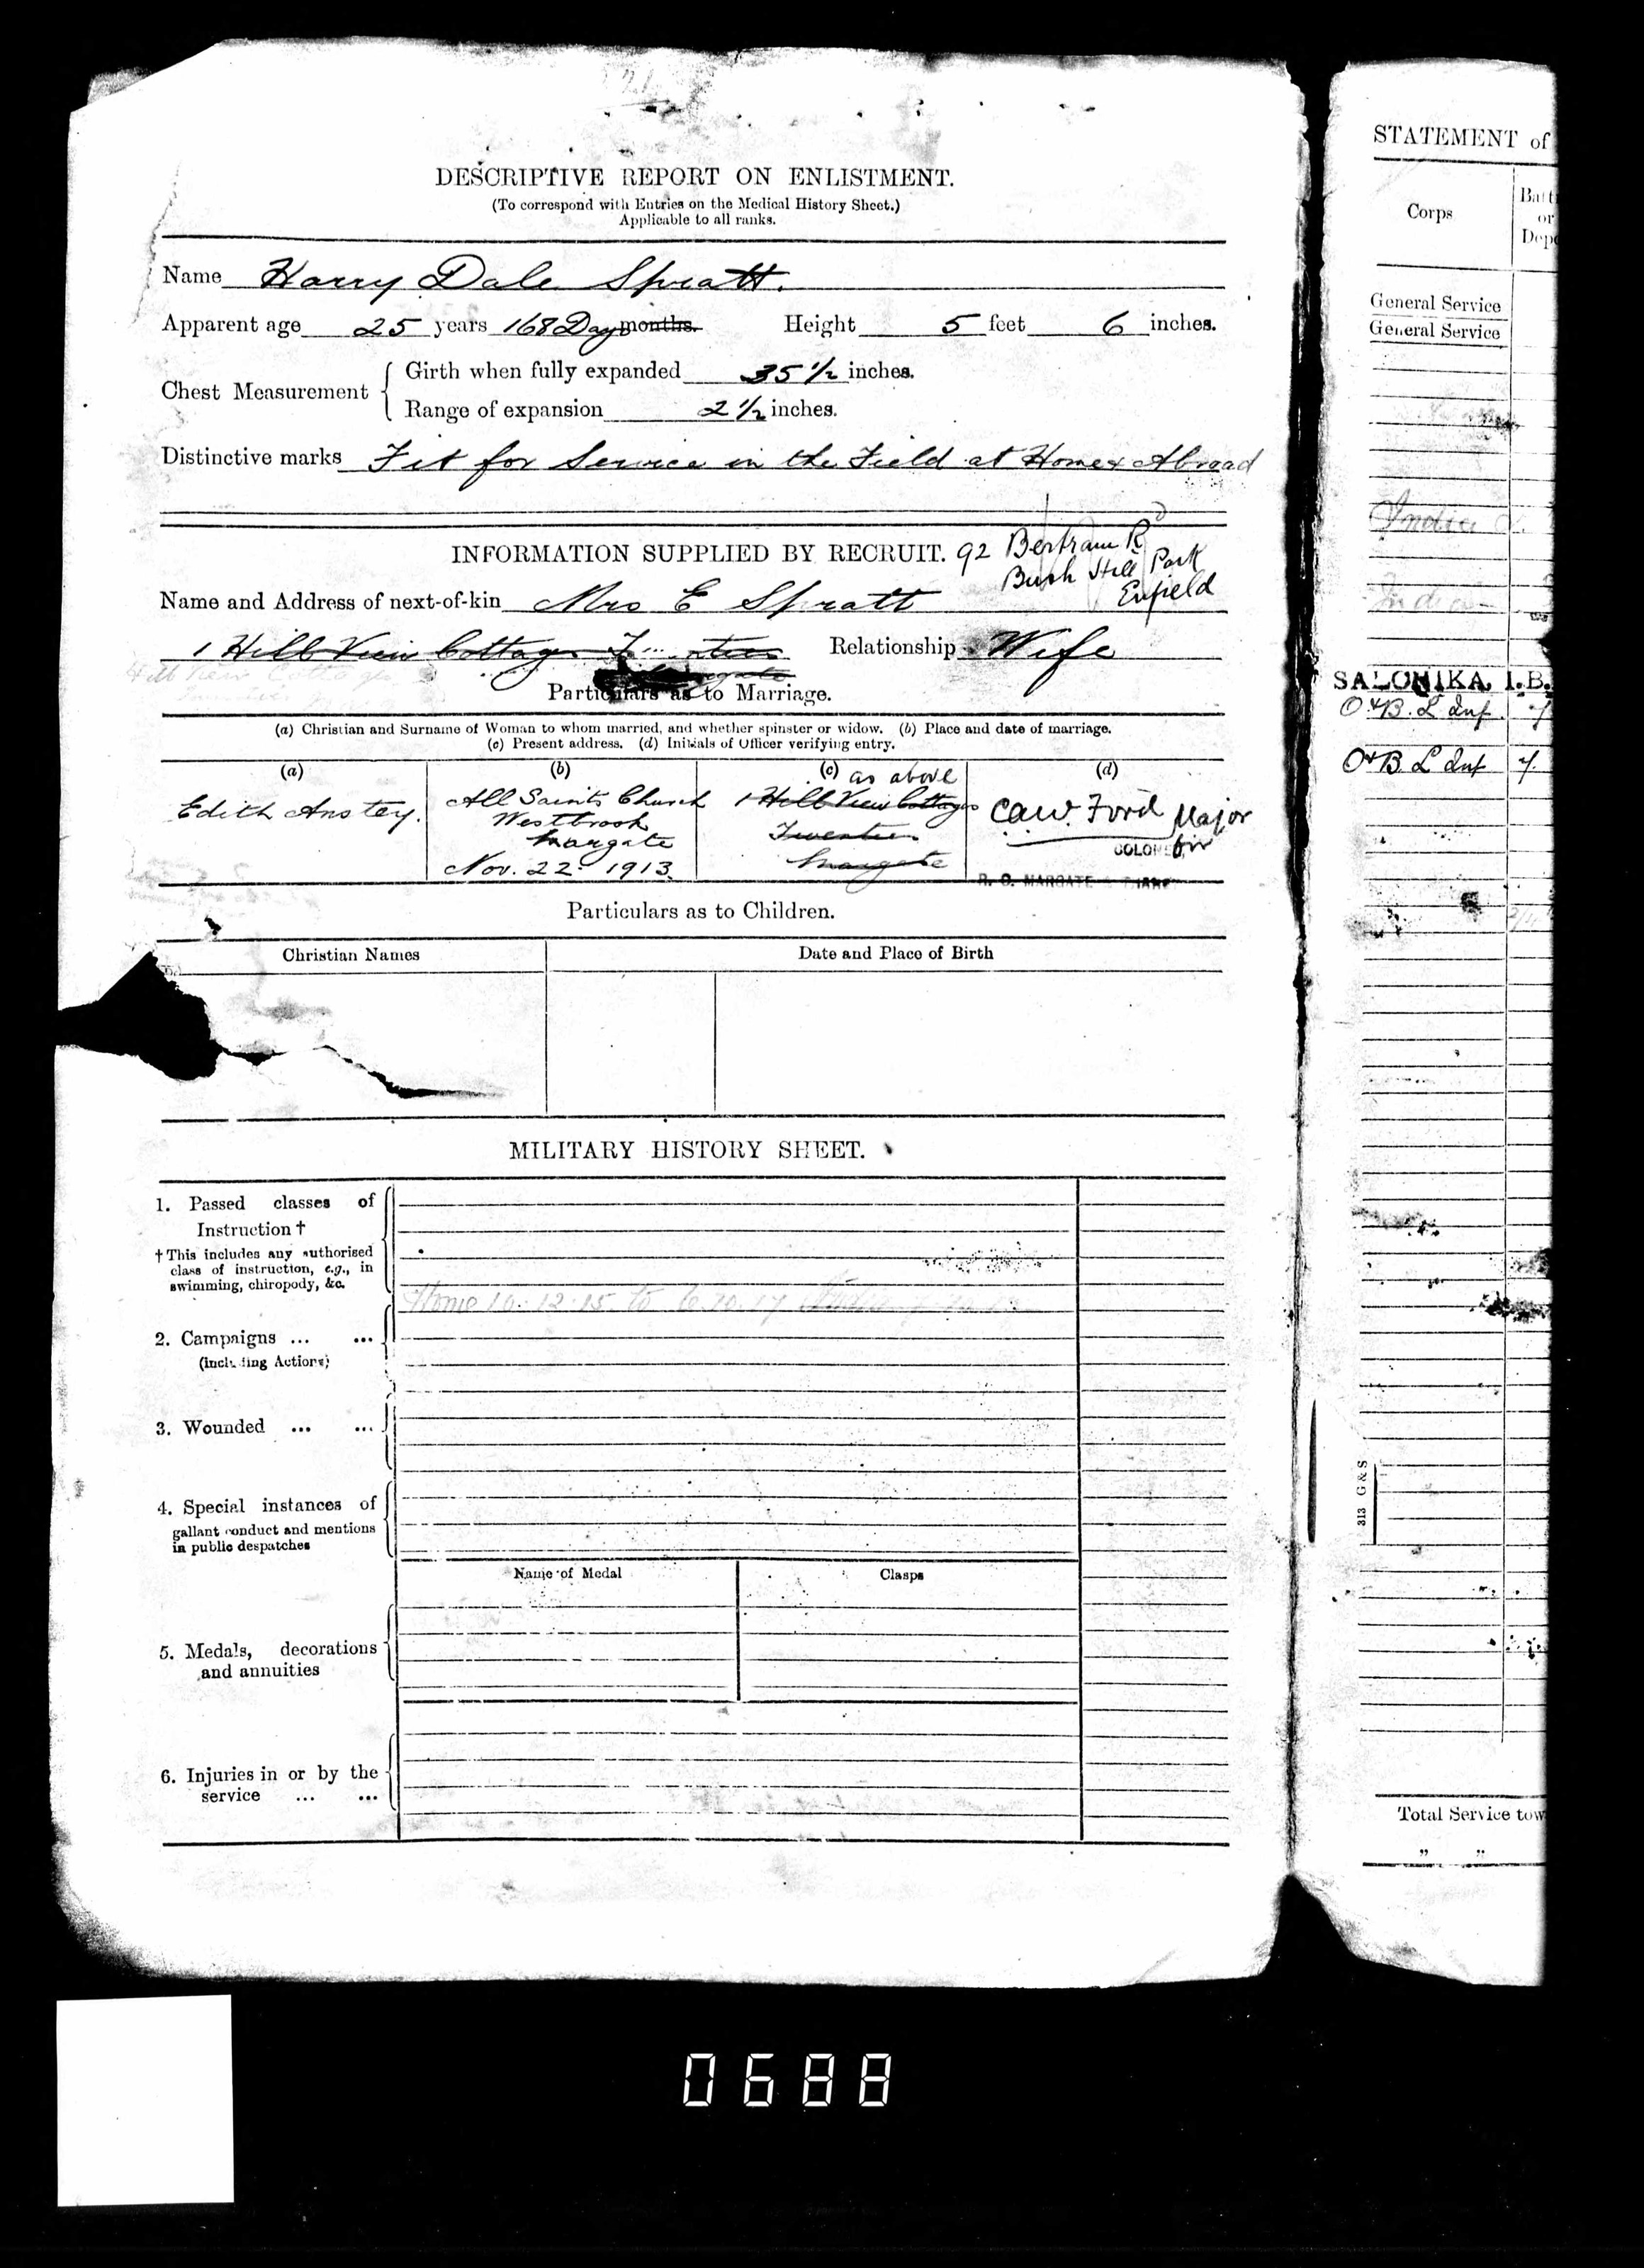 DESCRIPTIVE REPORT ON ENLISTMENT.
(To correspond with Entries on the Medical History Sheet.)
Applicable to all ranks.
Name Harry Dale Spratt.
Apparent age 25 years 168 Days months. Height 5 feet 6 inches.
Chest Measurement
Girth when fully expanded 35 1/2 inches.
Range of expansion 2 1/2 inches.
Distinctive marks Fit for Service in the Field at Home & Abroad
INFORMATION SUPPLIED BY RECRUIT. 92 Bertram Rd
Bush Hill Park
Enfield
Name and Address of next-of-kin Mrs E Spratt
1 Hill View Cottages Relationship Wife
Particulars as to Marriage.
(a) Christian and Surname of Woman to whom married, and whether spinster or widow. (b) Place and date of marriage.
(c) Present address. (d) Initials of Officer verifying entry.
(a) (b) (c) as above (d)
Edith Anstey.
All Saints Church
Westbrook
Margate
Nov. 22. 1913.
1 Hill View Cottages
Margate
C.A.W. Ford Major
for
COLONEL
R. O. MARGATE
Particulars as to Children.
Christian Names Date and Place of Birth
MILITARY HISTORY SHEET.
1. Passed classes of
Instruction †
† This includes any authorised
class of instruction, e.g., in
swimming, chiropody, &c.
Home 10.12.15 to 6.10.17
2. Campaigns ... ...
(including Actions)
3. Wounded ... ...
4. Special instances of
gallant conduct and mentions
in public despatches
Name of Medal Clasps
5. Medals, decorations
and annuities
6. Injuries in or by the
service ... ...
STATEMENT of
Corps
Batt
or
Depo
General Service
General Service
India
India
SALONIKA. I.B.
O & B. L Inf.
O & B. L Inf
313 G & S
Total Service tow
" "
0688